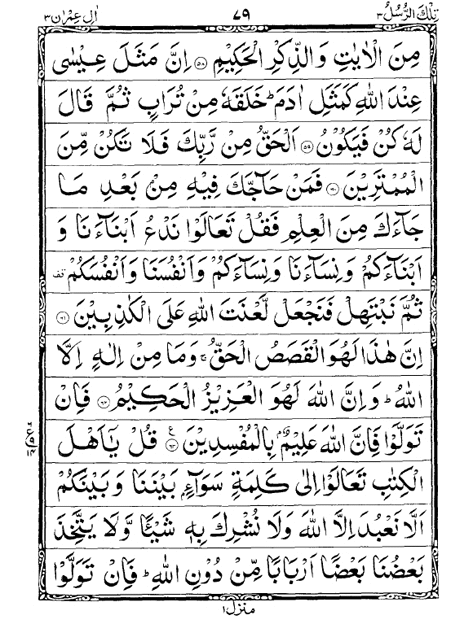 تِلْكَ الرُّسُلُ ٣ ٧٩ اٰلِ عِمْرٰن ٣
مِنَ الْاٰيٰتِ وَالذِّكْرِ الْحَكِيْمِ ۝٥٨ اِنَّ مَثَلَ عِيْسٰى
عِنْدَ اللّٰهِ كَمَثَلِ اٰدَمَ ؕ خَلَقَهٗ مِنْ تُرَابٍ ثُمَّ قَالَ
لَهٗ كُنْ فَيَكُوْنُ ۝٥٩ اَلْحَقُّ مِنْ رَّبِّكَ فَلَا تَكُنْ مِّنَ
الْمُمْتَرِيْنَ ۝٦٠ فَمَنْ حَآجَّكَ فِيْهِ مِنْۢ بَعْدِ مَا
جَآءَكَ مِنَ الْعِلْمِ فَقُلْ تَعَالَوْا نَدْعُ اَبْنَآءَنَا وَ
اَبْنَآءَكُمْ وَنِسَآءَنَا وَنِسَآءَكُمْ وَاَنْفُسَنَا وَاَنْفُسَكُمْ قف
ثُمَّ نَبْتَهِلْ فَنَجْعَلْ لَّعْنَتَ اللّٰهِ عَلَى الْكٰذِبِيْنَ ۝٦١
اِنَّ هٰذَا لَهُوَ الْقَصَصُ الْحَقُّ ۚ وَمَا مِنْ اِلٰهٍ اِلَّا
اللّٰهُ ؕ وَاِنَّ اللّٰهَ لَهُوَ الْعَزِيْزُ الْحَكِيْمُ ۝٦٢ فَاِنْ
تَوَلَّوْا فَاِنَّ اللّٰهَ عَلِيْمٌۢ بِالْمُفْسِدِيْنَ ۝٦٣ ع قُلْ يٰٓاَهْلَ
الْكِتٰبِ تَعَالَوْا اِلٰى كَلِمَةٍ سَوَآءٍۭ بَيْنَنَا وَبَيْنَكُمْ
اَلَّا نَعْبُدَ اِلَّا اللّٰهَ وَلَا نُشْرِكَ بِهٖ شَيْـًٔا وَّلَا يَتَّخِذَ
بَعْضُنَا بَعْضًا اَرْبَابًا مِّنْ دُوْنِ اللّٰهِ ؕ فَاِنْ تَوَلَّوْا
منزل ١